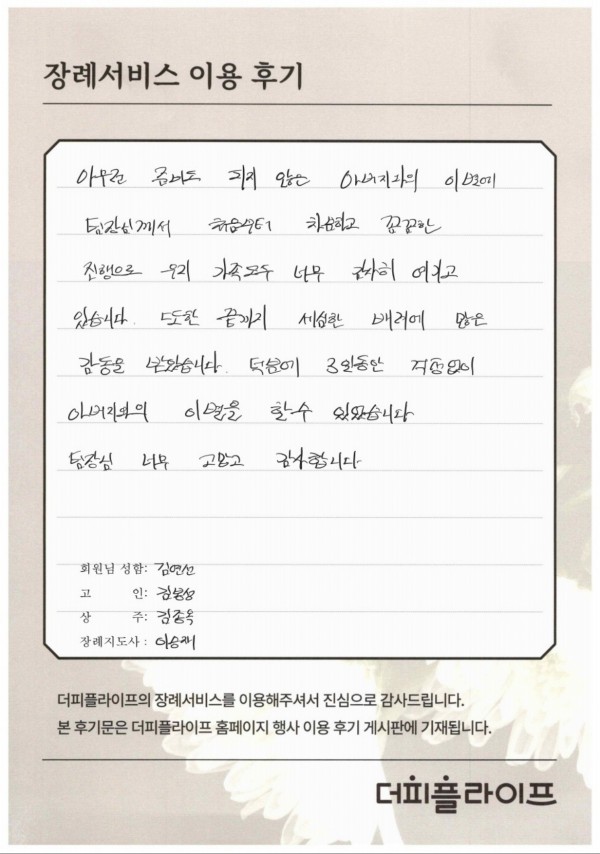 장례서비스 이용 후기
아무런 준비도 되지 않은 아버지와의 이별에
팀장님께서 처음부터 차분하고 꼼꼼한
진행으로 우리 가족모두 너무 감사히 여기고
있습니다. 또한 끝까지 세심한 배려에 많은
감동을 받았습니다. 덕분에 3일동안 걱정없이
아버지와의 이별을 할수 있었습니다
팀장님 너무 고맙고 감사합니다
회원님 성함: 김연선
고 인:
상 주: 김종옥
장례지도사 : 이승재
더피플라이프의 장례서비스를 이용해주셔서 진심으로 감사드립니다.
본 후기문은 더피플라이프 홈페이지 행사 이용 후기 게시판에 기재됩니다.
더피플라이프